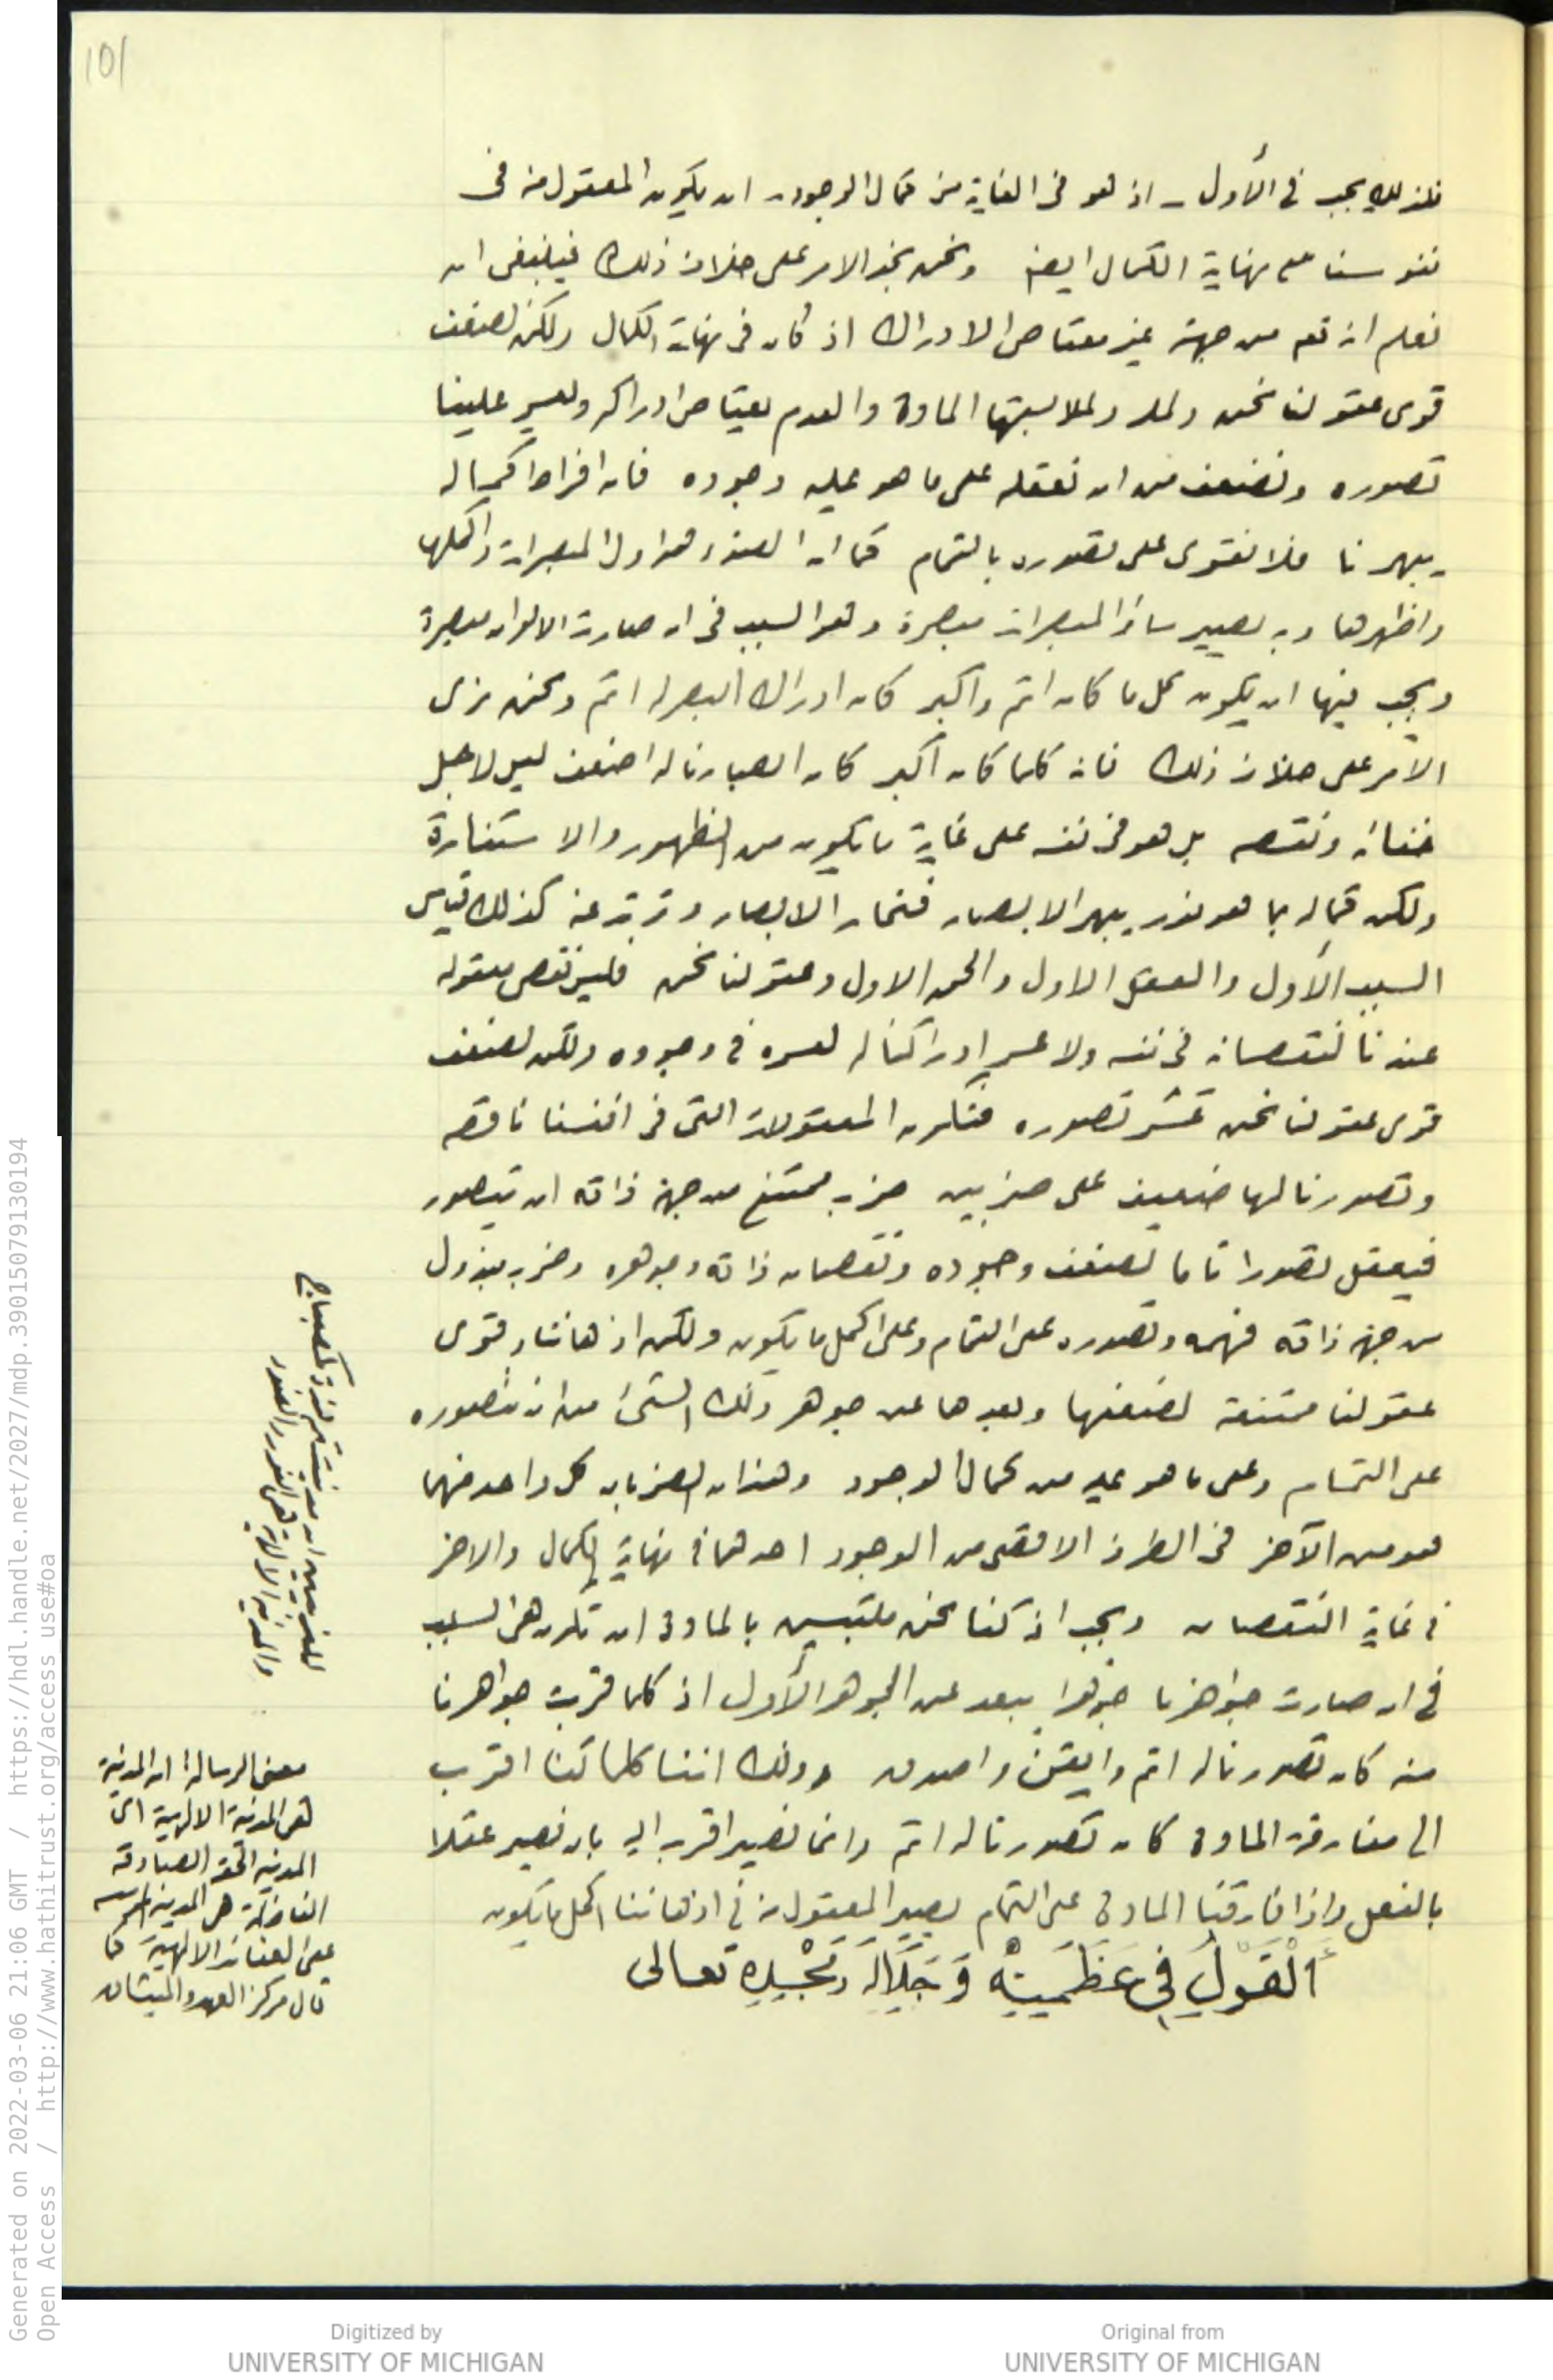 101
فلذلك يجب في الأول - اذ هو في الغاية من كمال الوجود - ان يكون المعقول منه في
نفوسنا على نهاية الكمال ايضا ونحن نجد الامر على خلاف ذلك فينبغي ان
نعلم انه تعم من جهته غير معتاص الادراك اذ كان في نهاية الكمال ولكن لضعف
قوى عقولنا نحن ولملابستها المادة والعدم يعتاص ادراكه ويعسر علينا
تصوره ونضعف من ان نعقله على ما هو عليه وجوده فان افراط كماله
يبهرنا فلا نقوى على تصوره بالتمام كما ان الضوء هو اول المبصرات واكملها
واظهرها وبه يصير سائر المبصرات مبصرة وهو السبب في ان صارت الالوان مبصرة
ويجب فيها ان يكون كل ما كان اتم واكبر كان ادراك البصر له اتم ونحن نرى
الأمر على خلاف ذلك فانه كلما كان اكبر كان ابصارنا له اضعف ليس لاجل
خفائه ونقصه بل هو في نفسه على غاية ما يكون من الظهور والاستنارة
ولكن كماله بما هو نور يبهر الابصار فتحار الابصار وترتد عنه كذلك قياس
السبب الأول والعقل الاول والحق الاول وعقولنا نحن فليس نقص معقوله
عندنا لنقصانه في نفسه ولا عسر ادراكنا له لعسره في وجوده ولكن لضعف
قوى عقولنا نحن عسر تصوره فتكون المعقولات التي في انفسنا ناقصه
وتصورنا لها ضعيف على ضربين ضرب ممتنع من جهة ذاته ان يتصور
فيعقل تصورا تاما لضعف وجوده ونقصان ذاته وجوهره وضرب مبذول
من جهة ذاته فهمه وتصوره على التمام وعلى اكمل ما يكون ولكن اذهاننا وقوى
عقولنا ممتنعة لضعفها وبعدها عن جوهر ذلك الشئ من ان نتصوره
على التمام وعلى ما هو عليه من كمال الوجود وهذان الضربان كل واحد منهما
هو من الآخر في الطرف الاقصى من الوجود احدهما في نهاية الكمال والاخر
في غاية النقصان ويجب اذ كنا نحن ملتبسين بالمادة ان تكون هى السبب
في ان صارت جواهرنا جوهرا يبعد عن الجوهر الأول اذ كلما قربت جواهرنا
منه كان تصورنا له اتم وايقن واصدق وذلك اننا كلما كنا اقرب
الى مفارقة المادة كان تصورنا له اتم وانما نصير اقرب اليه بان نصير عقلا
بالفعل واذا فارقنا المادة على التمام يصير المعقول منه في اذهاننا اكمل ما يكون
اَلْقَوْلُ فِي عَظَمَتِهٖ وَجَلَالِهٖ وَمَجْدِهٖ تعالى
معنى الرسالة ان المدنية
هى المدنية الالهية اى
المدنية الحقة الصادقة
الفاضلة هى المدنية المؤسسة
على الفضائل الالهية كما
قال مركز العهد والميثاق
Generated on 2022-03-06 21:06 GMT / https://hdl.handle.net/2027/mdp.39015079130194
Open Access / http://www.hathitrust.org/access_use#oa
Digitized by
UNIVERSITY OF MICHIGAN
Original from
UNIVERSITY OF MICHIGAN